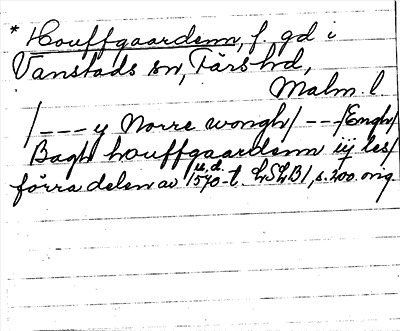 * Houffgaardenn, f. gd i
Vanstads sn, Färs hd,
Malm. l.
/--- y Norre wongh/ ---/Engh/
Bagh houffgaardenn iij les/
förra delen av u.d. 1570-t. LSLB1, s. 200. orig.